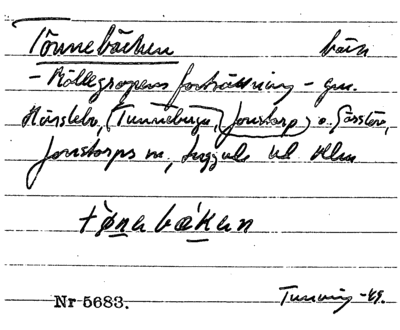 Tönnebäcken bäck
– Möllegropens fortsättning – gm.
Härslöv, (Tunneberga, Jonstorp) o. Farslöv,
Jonstorps sn, Luggude hd Mlm
tø̱nabæ̱kan
Nr 5683.
Tuneving -49.